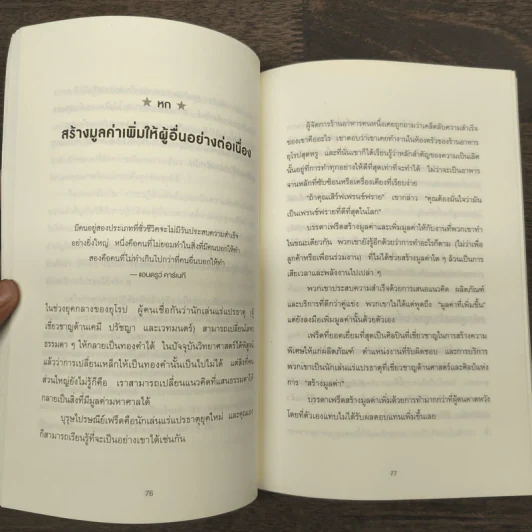 ★ หก ★
สร้างมูลค่าเพิ่มให้ผู้อื่นอย่างต่อเนื่อง
มีคนอยู่สองประเภทที่ชั่วชีวิตจะไม่มีวันประสบความสำเร็จ
อย่างยิ่งใหญ่ หนึ่งคือคนที่ไม่ยอมทำในสิ่งที่มีคนบอกให้ทำ
สองคือคนที่ไม่ทำเกินไปกว่าที่คนอื่นบอกให้ทำ
— แอนดรูว์ คาร์เนกี
ในช่วงยุคกลางของยุโรป ผู้คนเชื่อกันว่านักเล่นแร่แปรธาตุ (ผู้
เชี่ยวชาญด้านเคมี ปรัชญา และเวทมนตร์) สามารถเปลี่ยนโลหะ
ธรรมดา ๆ ให้กลายเป็นทองคำได้ ในปัจจุบันวิทยาศาสตร์ได้พิสูจน์
แล้วว่าการเปลี่ยนเหล็กให้เป็นทองคำนั้นเป็นไปไม่ได้ แต่สิ่งที่คน
ส่วนใหญ่ยังไม่รู้ก็คือ เราสามารถเปลี่ยนแนวคิดที่แสนธรรมดาให้
กลายเป็นสิ่งที่มีมูลค่ามหาศาลได้
บุรุษไปรษณีย์เฟร็ดคือนักเล่นแร่แปรธาตุยุคใหม่ และคุณเอง
ก็สามารถเรียนรู้ที่จะเป็นอย่างเขาได้เช่นกัน
76
ผู้จัดการร้านอาหารคนหนึ่งเคยถูกถามว่าเคล็ดลับความสำเร็จ
ของเขาคืออะไร เขาตอบว่าเขาเคยทำงานในห้องครัวของร้านอาหาร
ยุโรปสุดหรู และที่นั่นเขาก็ได้เรียนรู้ว่าหลักสำคัญของความเป็นเลิศ
นั้นอยู่ที่การทำทุกอย่างให้ดีที่สุดเท่าที่จะทำได้ ไม่ว่าจะเป็นอาหาร
จานหลักที่ซับซ้อนหรือเครื่องเคียงที่เรียบง่าย
"ถ้าคุณเสิร์ฟเฟรนช์ฟราย" เขากล่าว "คุณต้องมั่นใจว่ามัน
เป็นเฟรนช์ฟรายที่ดีที่สุดในโลก"
บรรดาเฟร็ดสร้างมูลค่าและเพิ่มมูลค่าให้กับงานที่พวกเขาทำ
ในขณะเดียวกัน พวกเขายังรู้อีกด้วยว่าการทำอะไรก็ตาม (ไม่ว่าเพื่อ
ลูกค้าหรือเพื่อนร่วมงาน) ที่ไม่ได้ช่วยสร้างมูลค่าใด ๆ ล้วนเป็นการ
เสียเวลาและพลังงานไปเปล่า ๆ
พวกเขาประสบความสำเร็จด้วยการเสนอแนวคิด ผลิตภัณฑ์
และบริการที่ดีกว่าคู่แข่ง พวกเขาไม่ได้แค่พูดถึง "มูลค่าที่เพิ่มขึ้น"
แต่ยังลงมือเพิ่มมูลค่านั้นด้วยตัวเอง
เฟร็ดที่ยอดเยี่ยมที่สุดคือศิลปินที่เชี่ยวชาญในการสร้างความ
พิเศษให้แก่ผลิตภัณฑ์ ตำแหน่งงานที่รับผิดชอบ และการบริการ
พวกเขาเป็นนักเล่นแร่แปรธาตุที่เชี่ยวชาญด้านศาสตร์และศิลป์แห่ง
การ "สร้างมูลค่า"
บรรดาเฟร็ดสร้างมูลค่าเพิ่มด้วยการทำมากกว่าที่ผู้คนคาดหวัง
โดยที่ตัวเองแทบไม่ได้รับผลตอบแทนเพิ่มขึ้นเลย
77